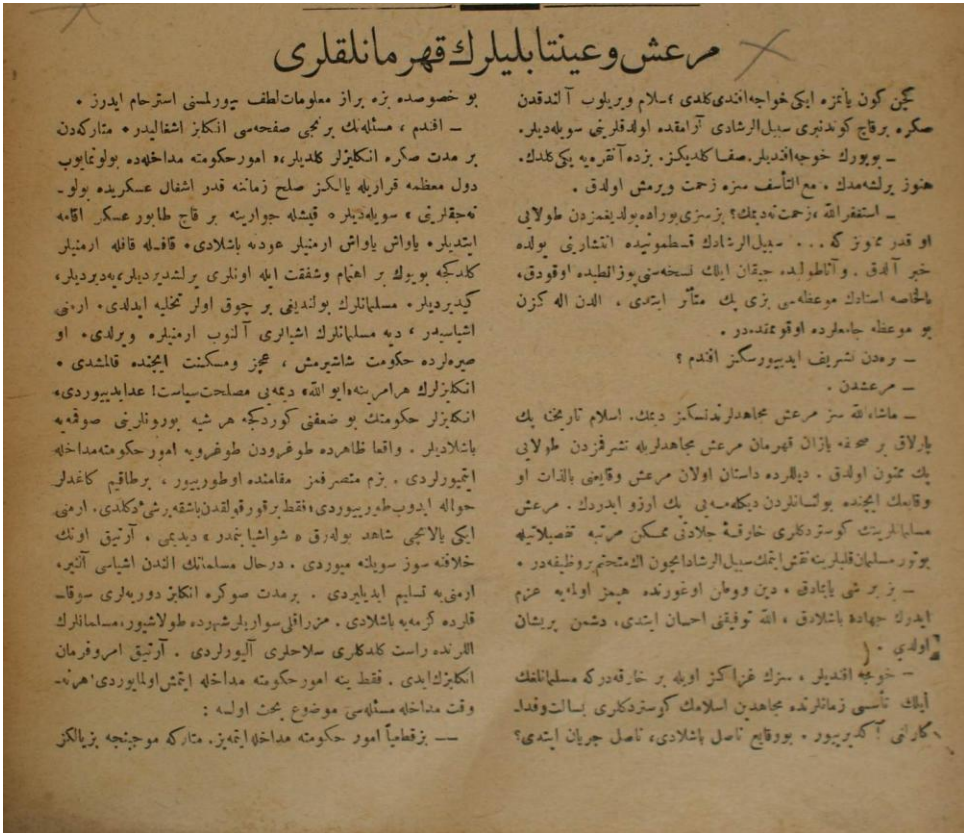 مرعش وعینتابلیلرك قهرمانلقلری
كچن كون یانمزه ایكی خواجه افندی كلدی ؛ سلام ویریلوب آلندقدن
صكره برقاچ كوندنبری سبیل الرشادی آرامقده اولدقلرینی سویله‌دیلر.
ـ بویورك خوجه افندیلر. صفا كلدیكز. بزده آنقره‌یه یكی كلدك.
هنوز یرلشه‌مدك . مع التأسف سزه زحمت ویرمش اولدق .
ـ استغفر الله ، زحمت نه‌دیمك؟ بز سزی بوراده بولدیغمزدن طولایی
او قدر ممنونز كه ... سبیل الرشادك قسطمونیده انتشارینی یولده
خبر آلدق . وآناطولیده چیقان ایلك نسخه‌سنی یوزالطیده اوقودق،
بالخاصه استادك موعظه‌سی بزی پك متأثر ایتدی ، الدن اله كزن
بو موعظه جامعلرده اوقونمقده‌در .
ـ نره‌دن تشریف ایدییورسكز افندم ؟
ـ مرعشدن .
ـ ماشاءالله سز مرعش مجاهدلرندنسكز دیمك. اسلام تاریخنه پك
پارلاق بر صحیفه یازان قهرمان مرعش مجاهدلریله تشرفمزدن طولایی
پك ممنون اولدق . دیللرده داستان اولان مرعش وقایعنی بالذات او
وقایعك ایچنده بولنانلردن دیكله‌مه‌یی پك آرزو ایدردك . مرعش
مسلمانلرینك كوستردكلری خارقهٔ جلادتی ممكن مرتبه تفصیلاتیله
بوتون مسلمان قلبلرینه نقش ایتمك سبیل الرشاد ایچون اك متحتم بروظیفه‌در .
ـ بز بر شی یاپمادق . دین ووطن اوغورنده هپمز اولمه‌یه عزم
ایدرك جهاده باشلادق . الله توفیقنی احسان ایتدی، دشمن پریشان
اولدی .
ـ خوجه افندیلر ، سزك غزاكز اویله بر خارقه‌دركه مسلمانلغك
ایلك تأسسی زمانلرنده مجاهدین اسلامك كوستردكلری بسالت وفدا‌ـ
كارلغی آكدیرییور . بووقایع ناصل باشلادی، ناصل جریان ایتدی؟
بو خصوصده بزه براز معلومات لطف بیورلمسنی استرحام ایدرز .
ـ افندم ، مسئله‌نك برنجی صفحه‌سی انكلیز اشغالیدر . متاركه‌دن
بر مدت صكره انكلیزلر كلدیلر ، « امور حكومته مداخله‌ده بولونمایوب
دول معظمه قراریله یالكز صلح زماننه قدر اشغال عسكریده بولو ـ
نه‌جقلرینی » سویله‌دیلر . قیشله جوارینه بر قاچ طابور عسكر اقامه
ایتدیلر . یاواش یاواش ارمنیلر عودته باشلادی . قافله قافله ارمنیلر
كلدكجه بویوك بر اهتمام وشفقت ایله اونلری یرلشدیردیلر، یدیردیلر،
كیدیردیلر . مسلمانلرك بولندیغی بر چوق اولر تخلیه ایدلدی . ارمنی
اشیاسیدر ، دیه مسلمانلرك اشیالری آلنوب ارمنیلره ویرلدی . او
صیره‌لرده حكومت شاشیرمش ، عجز ومسكنت ایچنده قالمشدی .
انكلیزلرك هر امرینه «ایو الله» دیمه‌یی مصلحت سیاست! عد ایدییوردی.
انكلیزلر حكومتك بو ضعفنی كوردكجه هر شیئه بورونلرینی صوقمه‌یه
باشلادیلر . واقعا ظاهرده طوغرودن طوغرویه امور حكومته مداخله
ایتمیورلردی . بزم متصرفمز مقامنده اوطورییور ، برطاقیم كاغدلر
حواله ایدوب طورییوردی، فقط بر قورقولقدن باشقه بر شی دكلدی. ارمنی
ایكی یالانجی شاهد بوله‌رق « شو اشیا بنمدر » دیدیمی . آرتیق اونك
خلافنه سوز سویلنه میوردی . درحال مسلمانك الندن اشیاسی آلنیر،
ارمنی‌یه تسلیم ایدیلیردی . برمدت صوكره انكلیز دوریه‌لری سوقا ـ
قلرده كزمه‌یه باشلادی . مزراقلی سواریلر شهرده طولاشیور، مسلمانلرك
اللرنده راست كلدكلری سلاحلری آلیورلردی . آرتیق امر وفرمان
انكلیزك ایدی . فقط ینه امور حكومته مداخله ایتمش اولمایوردی! هر نه ـ
وقت مداخله مسئله‌سی موضوع بحث اولسه :
ـ بز قطعیاً امور حكومته مداخله ایتمه‌یز. متاركه موجبنجه بز یالكز